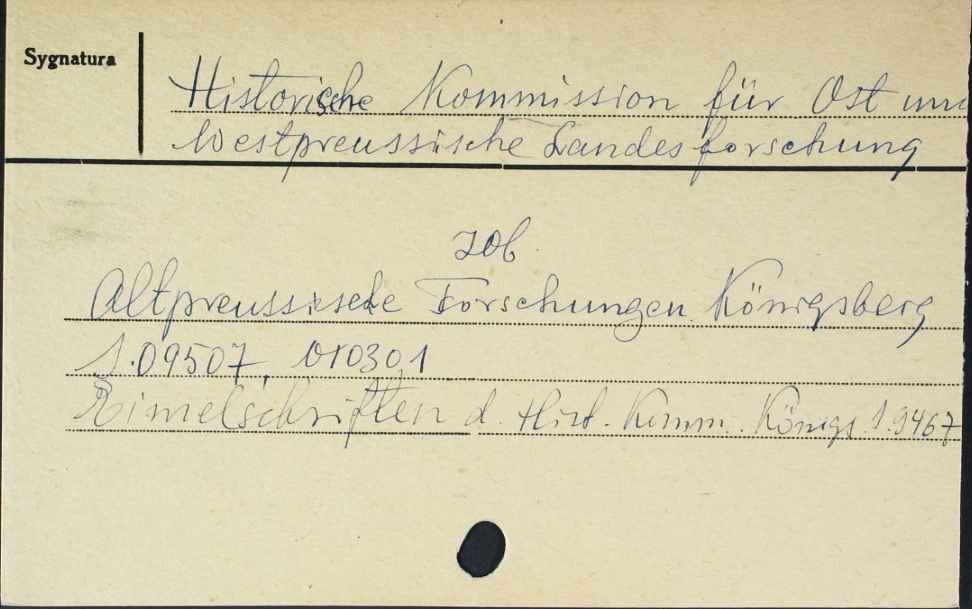 Sygnatura
Historische Kommission für Ost und
Westpreussische Landesforschung
zob.
Altpreussische Forschungen Königsberg
1.09507, 010301
Einzelschriften d. Hist. Komm. Königs 1.9467